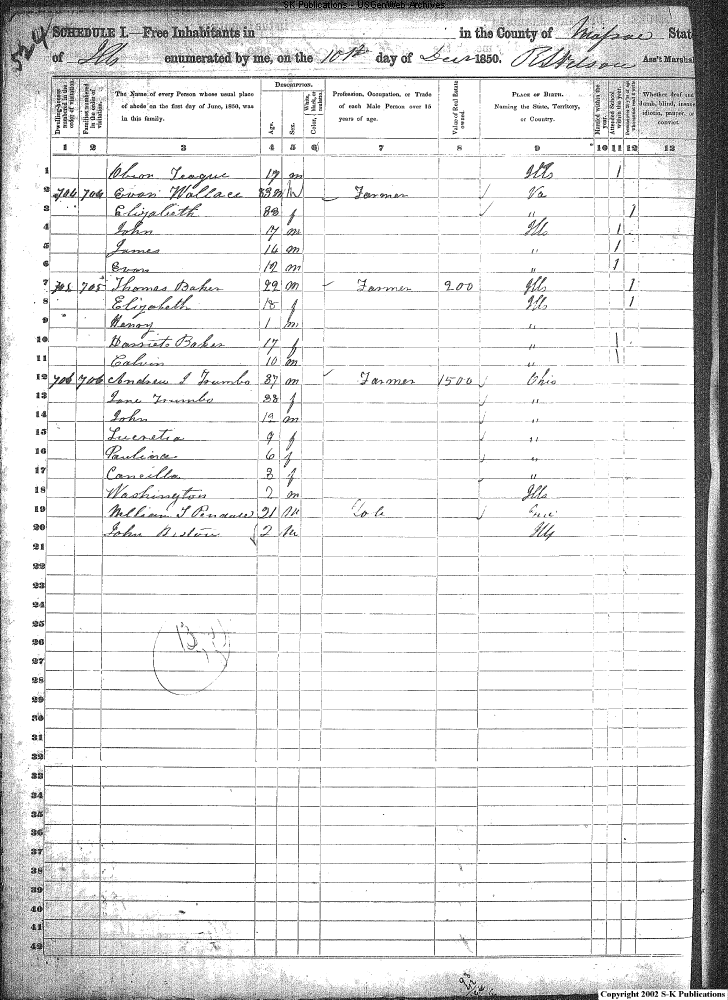 SK Publications - USGenWeb Archives
524
SCHEDULE I.—Free Inhabitants in in the County of State
of Ills enumerated by me, on the 10th day of 1850. Ass't Marshal
Dwelling-houses numbered in the order of visitation.
Families numbered in the order of visitation.
The Name of every Person whose usual place of abode on the first day of June, 1850, was in this family.
DESCRIPTION.
Age.
Sex.
Color,
Profession, Occupation, or Trade of each Male Person over 15 years of age.
Value of Real Estate owned.
PLACE OF BIRTH. Naming the State, Territory, or Country.
Married within the year.
Attended School within the year.
Whether deaf and dumb, blind, insane, idiotic, pauper, or convict.
1 2 3 4 5 6 7 8 9 10 11 12 13
1 Teague m Ills 1
2 704 704 Evan Wallace Farmer Va
3 Elizabeth f " 1
4 John 17 m Ills 1
5 James 14 m " 1
6 Evan 12 m " 1
7 705 705 Thomas Baker 22 m Farmer 200 Ills 1
8 Elizabeth 18 f Ills 1
9 Henry 1 m "
10 Harriet Baker 17 f " 1
11 Calvin 10 m " 1
12 706 706 Andrew J Trumbo 37 m Farmer 1500 Ohio
13 Jane Trumbo 33 f "
14 John 12 m "
15 Lucretia 9 f "
16 Paulina 6 f "
17 3 f "
18 Washington 2 m Ills
19 William T 21 M
20 John 2 M Ills
21
22
23
24
25
26
27
28
29
30
31
32
33
34
35
36
37
38
39
40
41
42
Copyright 2002 S-K Publications